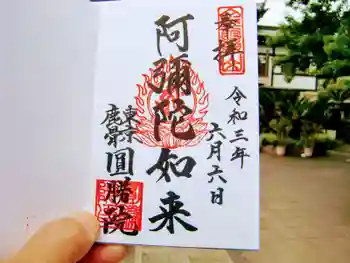 奉拝
令和三年
六月六日
阿彌陀如来
東京
鹿景
圓勝院